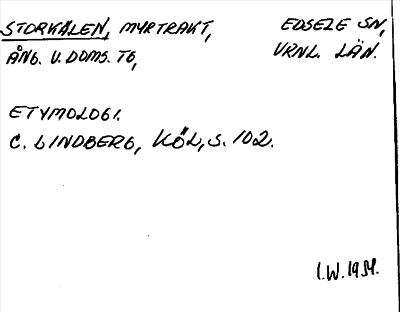 STORKÄLEN, MYRTRAKT, EDSELE SN,
ÅNG. V. DOMS. TG, VRNL. LÄN.
ETYMOLOGI.
C. LINDBERG, KÖL, S. 102.
I.W. 1951.